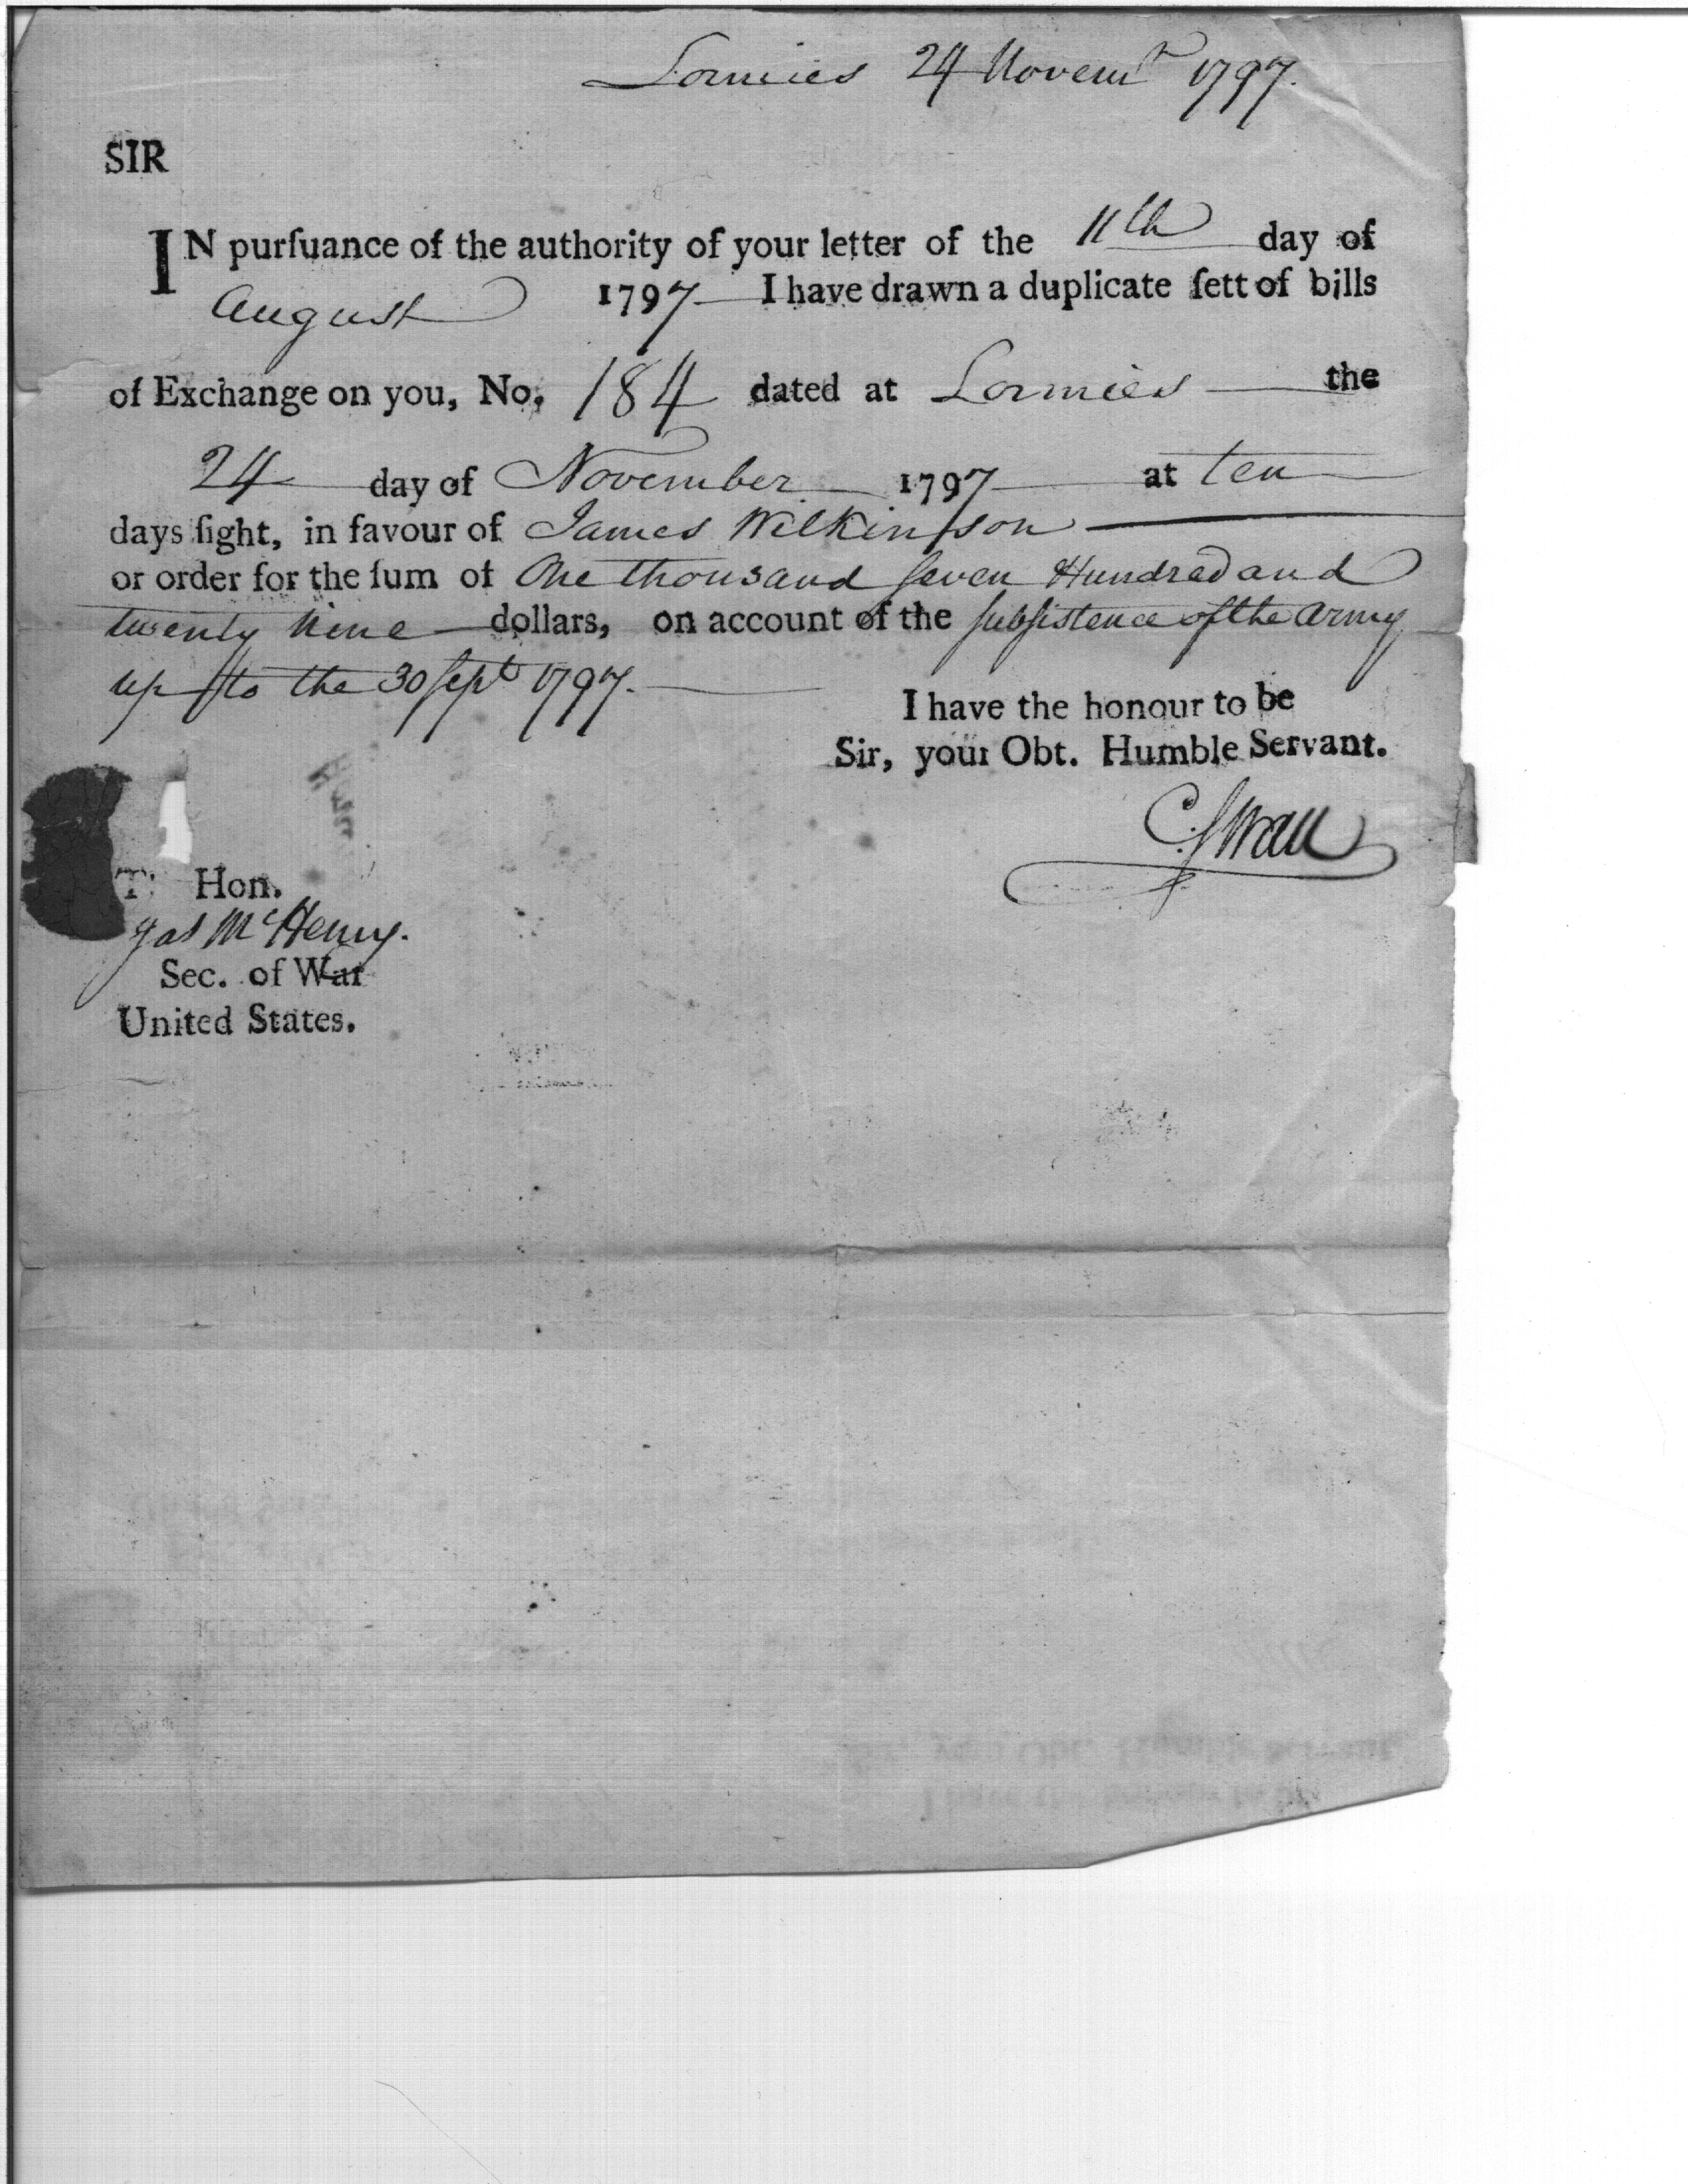 Lormies 24 Novemr 1797.
SIR
IN purſuance of the authority of your letter of the 11th day of
August 1797 I have drawn a duplicate ſett of bills
of Exchange on you, No. 184 dated at Lormies the
24 day of November 1797 at ten
days ſight, in favour of James Wilkinſon
or order for the ſum of One thousand Seven Hundred and
twenty Nine dollars, on account of the Subſistence of the Army
up to the 30 Sept 1797.
I have the honour to be
Sir, your Obt. Humble Servant.
C. Swan
T Hon.
Jas McHenry.
Sec. of War
United States.